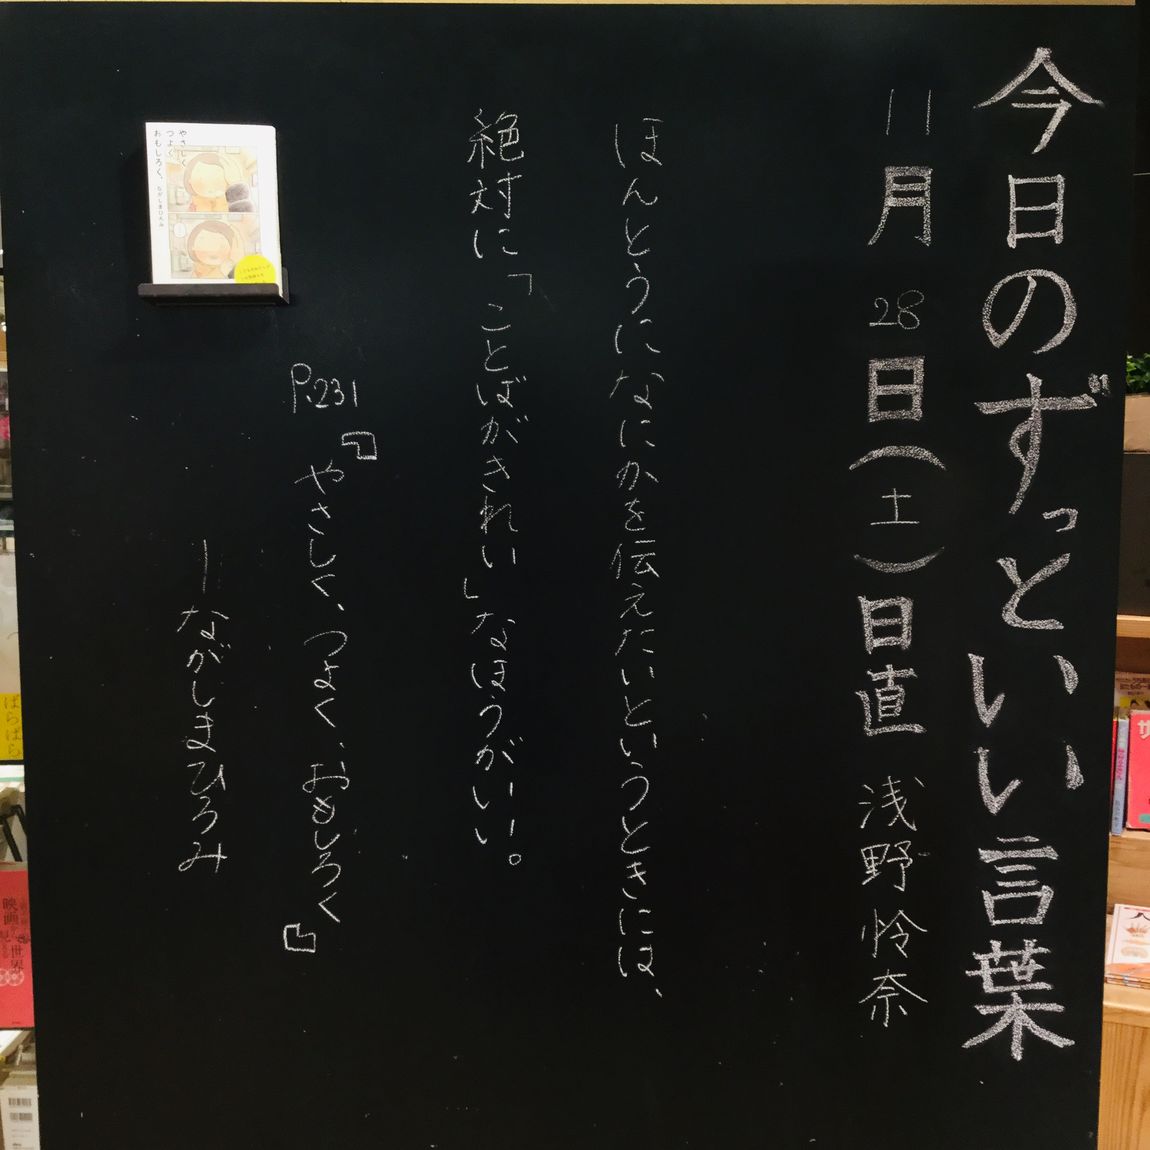 今日のずっといい言葉
11月28日(土)日直 浅野怜奈
ほんとうになにかを伝えたいというときには、
絶対に「ことばがきれい」なほうがいい。
P.231『やさしく、つよく、おもしろく』
ーながしまひろみ
やさしく
つよく
おもしろく、
ながしまひろみ
ばらばら
映画
世界